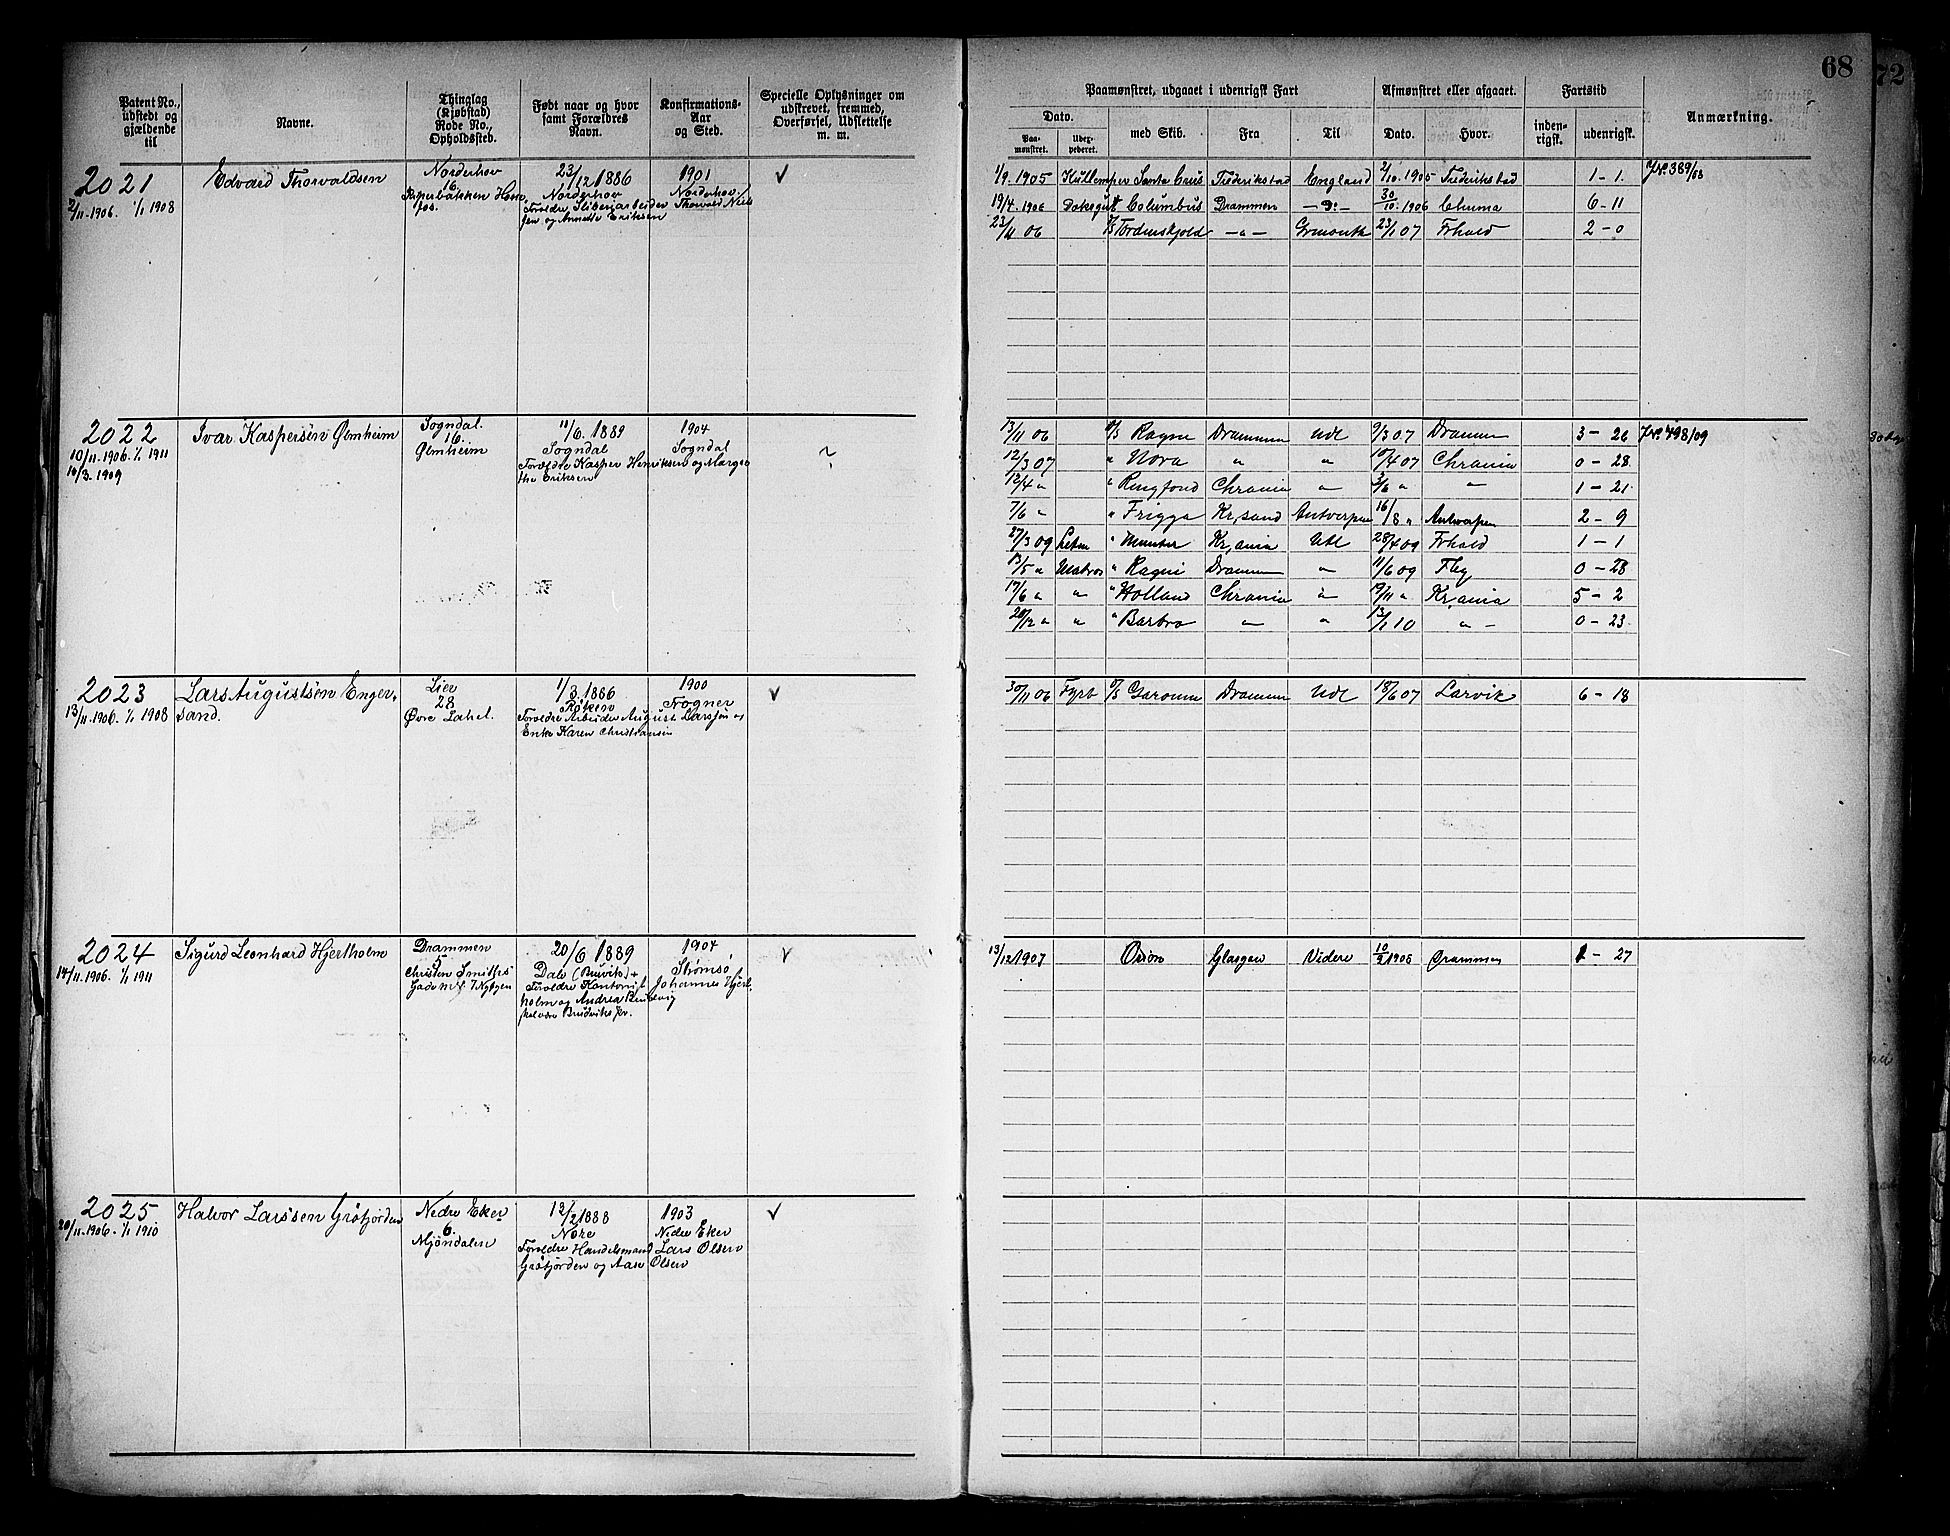 68
72
Patent No., udstedt og gjældende til
Navne.
Thinglag (Kjøbstad) Rode No., Opholdssted.
Født naar og hvor samt Forældres Navn.
Konfirmations-Aar og Sted.
Specielle Oplysninger om udskrevet, fremmed, Overførsel, Udslettelse m. m.
Paamønstret, udgaaet i udenrigsk Fart
Dato.
Paamønstret.
med Skib.
Fra
Til
Afmønstret eller afgaaet.
Dato.
Hvor.
Fartstid
indenrigsk.
udenrigsk.
Anmærkning.
2021
2/11.1906. 1/1 1908
Edvard Thorvaldsen
Norderhov
16.
23/12 1886
Norderhov
1901
Norderhov
√
1/9.1905 Santa Crus Frederikstad England 2/10.1905 Frederikstad 1-1. J№.389/08
19/4.1906 Columbus Drammen 30/10.1906 6-11
23/11 06 Tordenskjold -"- 23/1 07 Frhald 2-0
2022
10/11.1906. 1/1 1911
10/3.1909
Ivar Kaspersen Ølmheim
Sogndal.
16.
Ølmheim
11/6.1889
Sogndal
Forældre Kasper Henriksen og Margre
the Eriksen
1904
Sogndal
13/11 06 Ragne Drammen Udl 9/3 07 Drammen 3-26 J№.498/09
12/3 07 " Nora " " 10/4 07 Chrania 0-28
12/4 " " Chrania " 3/6 " " 1-21
7/6 " " Frigga Kr,sand Antwerpen 16/8 " Antwerpen 2-9
27/3 09 " Kr,ania Udl 28/4 09 Frhald 1-1
13/5 " Matros " Ragni Drammen " 11/6 09 0-28
17/6 " " " Holland Chrania " 19/11 " Kr,ania 5-2
20/12 " " " Barbro " " 13/1 10 " - 0-23.
2023
13/11.1906. 1/1 1908
Lars Augustsen Enger-
sand.
Lier
28
Øvre Lahel.
1/3.1886
Røken
Forældre Arbeider August Larssen og
Enke Karen Christiansen
1900
Frogner
√
30/11 06 Fyrb Garonne Drammen Udl 18/6 07 Larvik 6-18
2024
14/11.1906. 1/1 1911
Sigurd Leonhard Hjertholm
Drammen
5
Christen Smiths
20/6 1889
Dale
holm og Andrea
1904
Strømsø
Johannes Hjert-
√
13/12 1907 Orion Glasgow Videre 10/2 1908 Drammen 1-27
2025
20/11.1906. 1/1 1910
Halvor Larssen Grøtjorden
Nedre Eker
6.
Mjøndalen
12/2 1888
Nore
Forældre Handelsmand Lars Olsen
Grøtjorden og Aase Olsen
1903
Nedre Eker
√